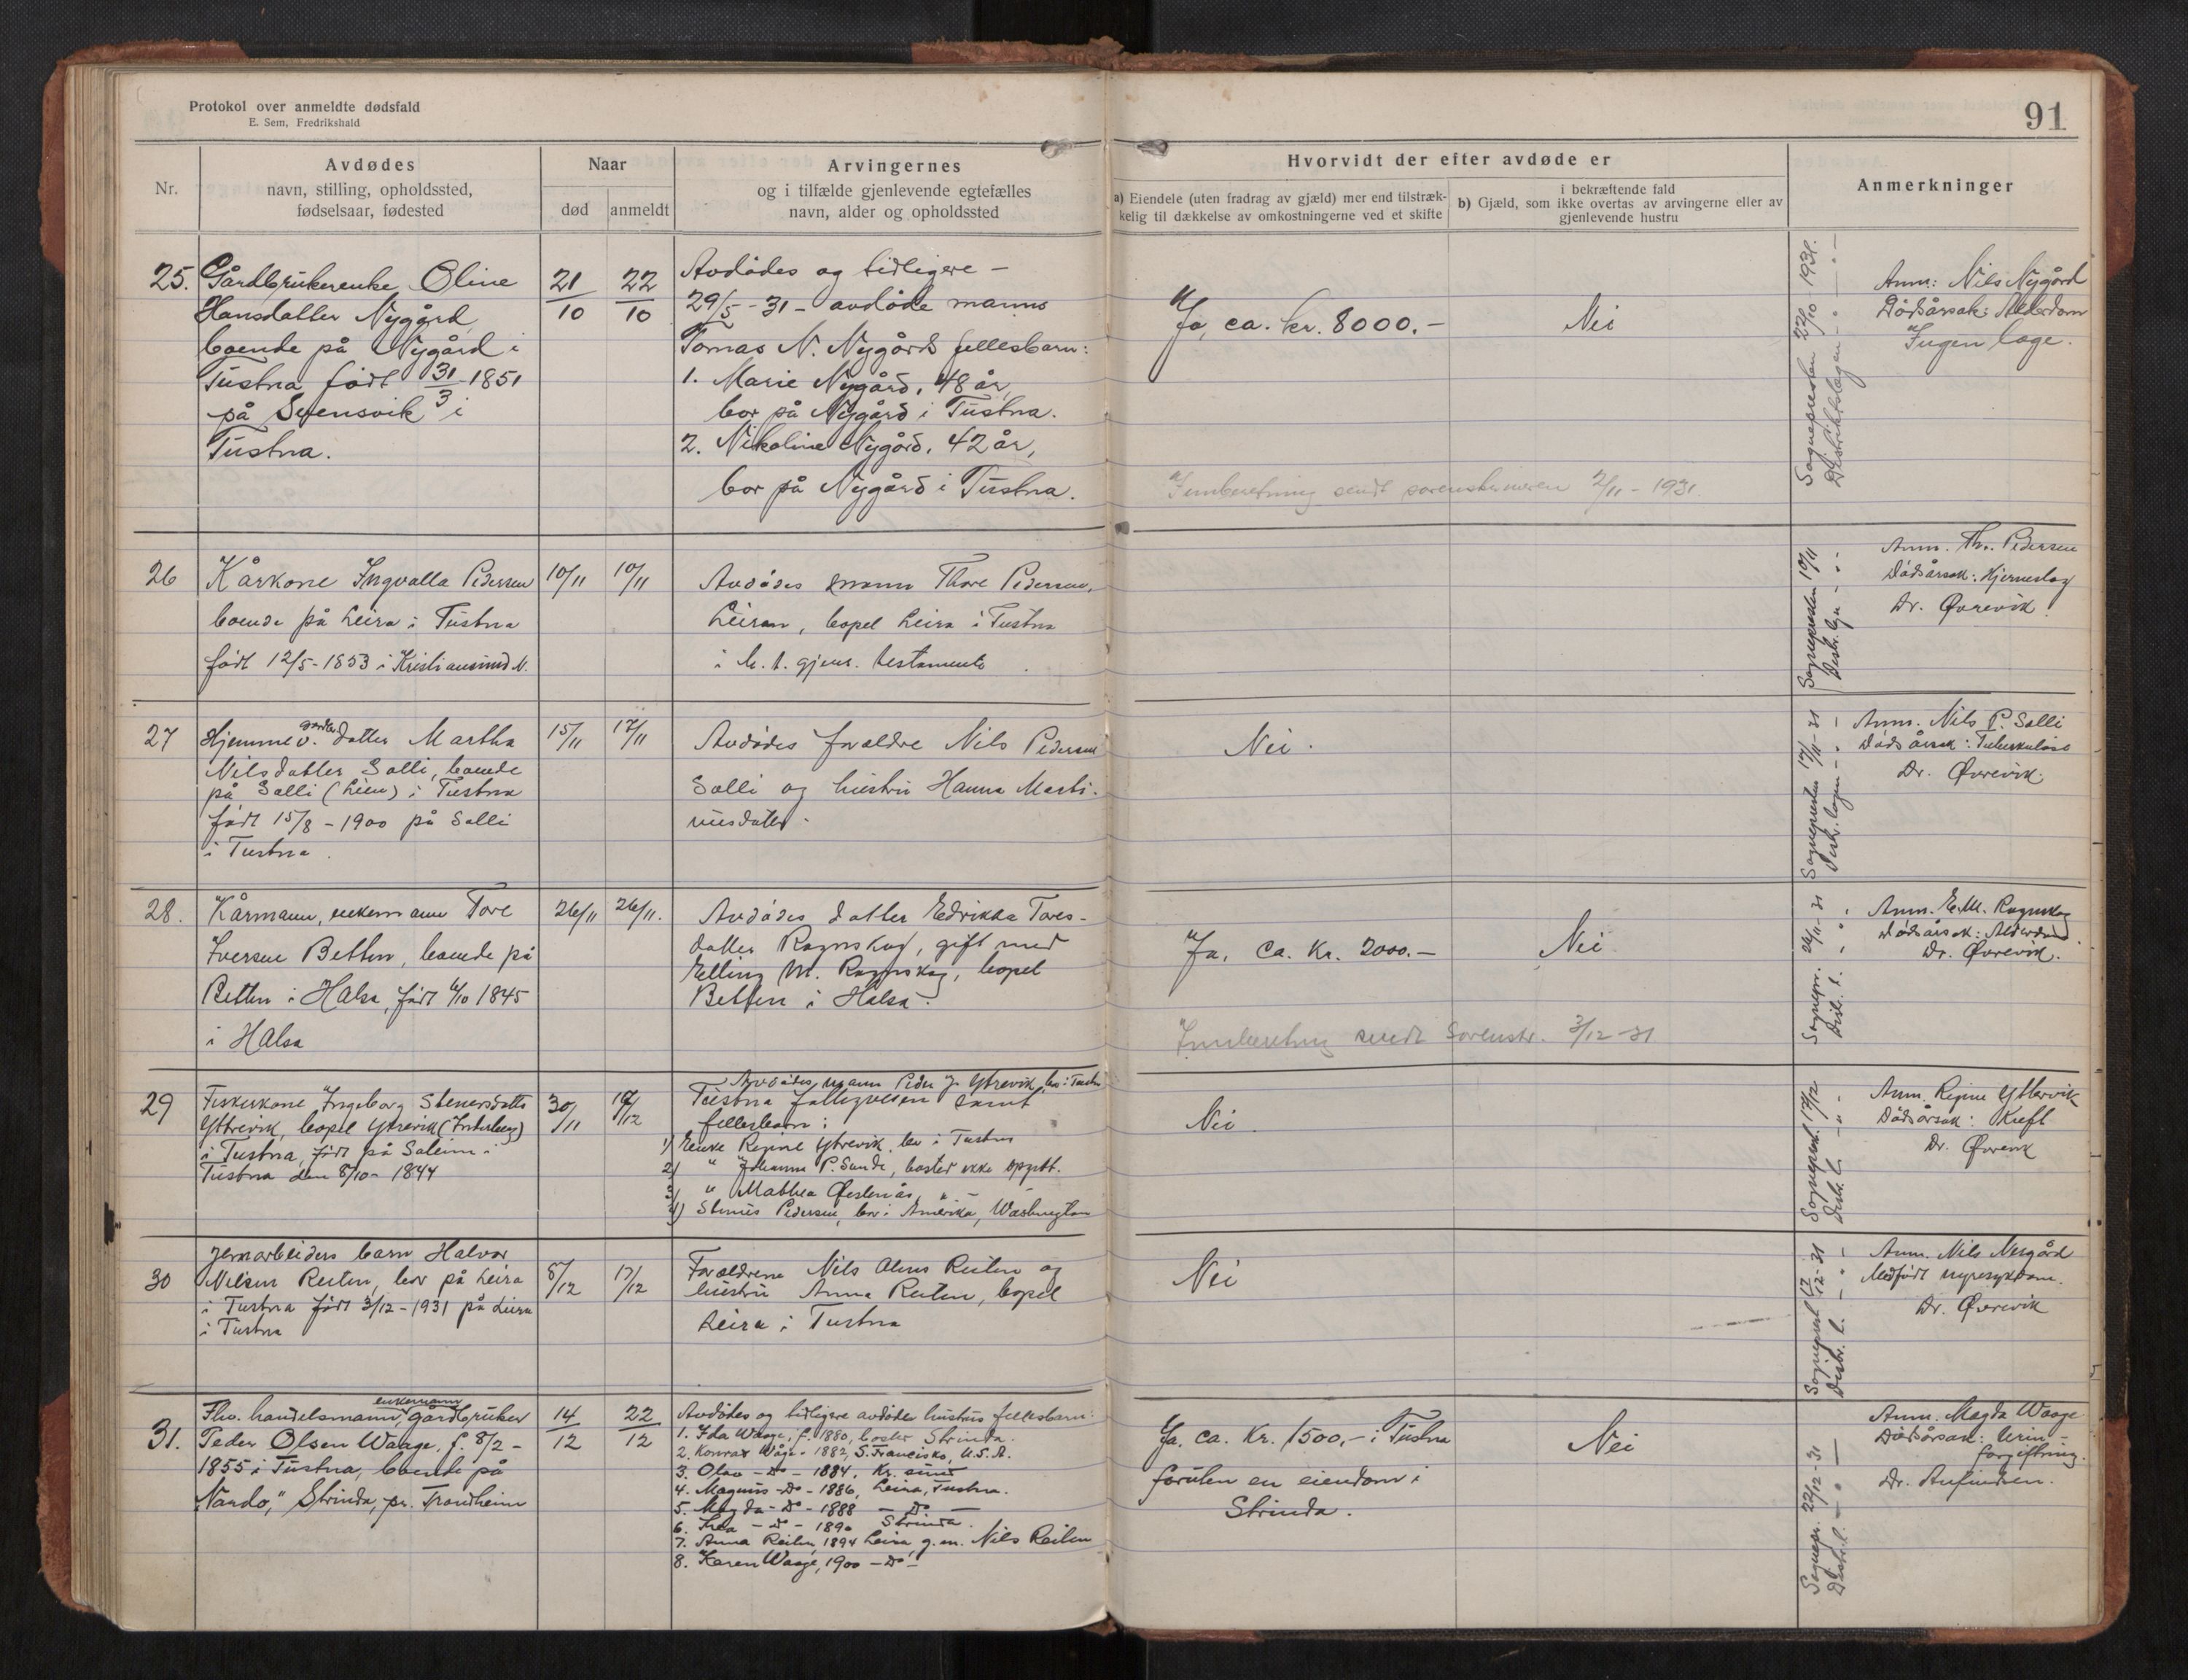 Protokol over anmeldte dødsfald
E. Sem, Fredrikshald
91
Nr.
Avdødes
navn, stilling, opholdssted,
fødselsaar, fødested
Naar
død
anmeldt
Arvingernes
og i tilfælde gjenlevende egtefælles
navn, alder og opholdssted
Hvorvidt der efter avdøde er
a) Eiendele (uten fradrag av gjæld) mer end tilstræk-
kelig til dækkelse av omkostningerne ved et skifte
i bekræftende fald
b) Gjæld, som ikke overtas av arvingerne eller av
gjenlevende hustru
Anmerkninger
25.
Gårdbrukerenke Oline
Hansdatter Nygård
boende på Nygård i
Tustna født 31/3 1851
på Svensvik i
Tustna.
21/10
22/10
Avdødes og tidligere –
29/5 - 31 – avdøde manns
Tomas N. Nygårds fellesbarn:
1. Marie Nygård, 48 år,
bor på Nygård i Tustna.
2. Nikoline Nygård, 42 år,
bor på Nygård i Tustna.
Ja, ca. kr. 8000.-
Nei
Innberetning sendt sorenskriveren 2/11 - 1931
Sognepresten 22/10 1931.
Distriktslegen
Anm: Nils Nygård
Dødsårsak: Alderdom
Ingen læge.
26
Kårkone Ingvalla Pedersen
boende på Leira i Tustna
født 12/5 - 1853 i Kristiansund N.
10/11
10/11
Avdødes mann Thore Pedersen,
Leiran, bopel Leira i Tustna
i h. t. gjens. testamente
Sognepresten 10/11
Distr. legen
Anm. Th. Pedersen
Dødsårsak: Hjerneslag
Dr. Øvrevik.
27
Hjemmev. datter Martha
Nilsdatter Solli, boende
på Solli (Lien) i Tustna
født 15/8 - 1900 på Solli
i Tustna.
15/11
17/11
Avdødes forældre Nils Pedersen
Solli og hustru Hanna Marti-
nusdatter.
Nei.
Sognepresten 17/11 - 31
Distr. legen
Anm. Nils P. Solli
Dødsårsak: Tuberkulose
Dr. Øvrevik.
28.
Kårmann, enkemann Tore
Iversen Betten, boende på
Betten i Halsa, født 6/10 1845
i Halsa
26/11
26/11.
Avdødes datter Edrikka Tores-
datter Rognskog, gift med
Elling M. Rognskog, bopel
Betten i Halsa.
Ja, ca. Kr. 2000.-
Nei
Innberetning sendt Sorenskr. 3/12 - 31
Sognepr. 26/11 - 31
Distr. l.
Anm. E. M. Rognskog
Dødsårsak: Alderdom
Dr. Øvrevik.
29
Fiskerkone Ingeborg Stenersdatter
Ytrevik, bopel Ytrevik
i Tustna, født på Soleim i
Tustna den 8/10 - 1844
30/11
12
Avdødes mann Peder J. Ytrevik, bor i Tustna
Tustna fattigvesen samt
fellesbarn:
1) Enke Regine Ytrevik, bor i Tustna
2) " Johanna P. Sunde, bosted ikke opgitt.
3) " Mathea " –
4) Pedersen, bor i Amerika, Washington
Nei.
Sogneprest. 17/12
Distr. l.
Anm. Regine Yttervik
Dødsårsak: Kreft
Dr. Øvrevik
30
Jernarbeiders barn Halvor
Nilsen Reiten, bor på Leira
i Tustna født 3/12 - 1931 på Leira
i Tustna
8/12
17/12
Forældrene Nils Reiten og
hustru Anna Reiten, bopel
Leira i Tustna
Nei
Sogneprest 17/12 - 31
Distr. l.
Anm. Nils Nesgård
Medfødt nyresykdom.
Dr. Øvrevik
31.
Fhv. handelsmann, enkemann gårdbruker
Peder Olsen Waage, f. 8/2 -
1855 i Tustna, boende på
"Nardo," Strinda, pr. Trondheim
14/12
22/12
Avdødes og tidligere avdøde hustrus fellesbarn:
1. Ida Waage, f. 1880, bosted Strinda.
2. Konrad Våge - 1882, S. Francisko, U. S. A.
3. Olav - Do - 1884, Kr. sund
4. Magnus - Do - 1886, Leira, Tustna.
5. Magda - Do - 1888 — Do —
6. - Do - 1890 Strinda.
7. Anna Reiten, 1894 Leira, g. m. Nils Reiten
8. Karen Waage, 1900 - Do -
Ja. ca. Kr. 1500,- i Tustna
foruten en eiendom i
Strinda.
Nei
Sognepr. 22/12 - 31
Distr. l.
Anm. Magda Waage
Dødsårsak: Urin-
forgiftning.
Dr.